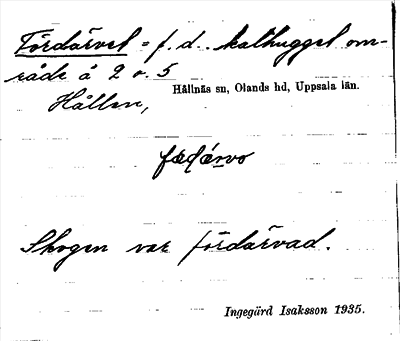 Fördärvet = f. d. kalhugget om-
råde å 2 o. 5
Hållnäs sn, Olands hd, Uppsala län.
Hållen,
Skogen var fördärvad.
Ingegärd Isaksson 1935.